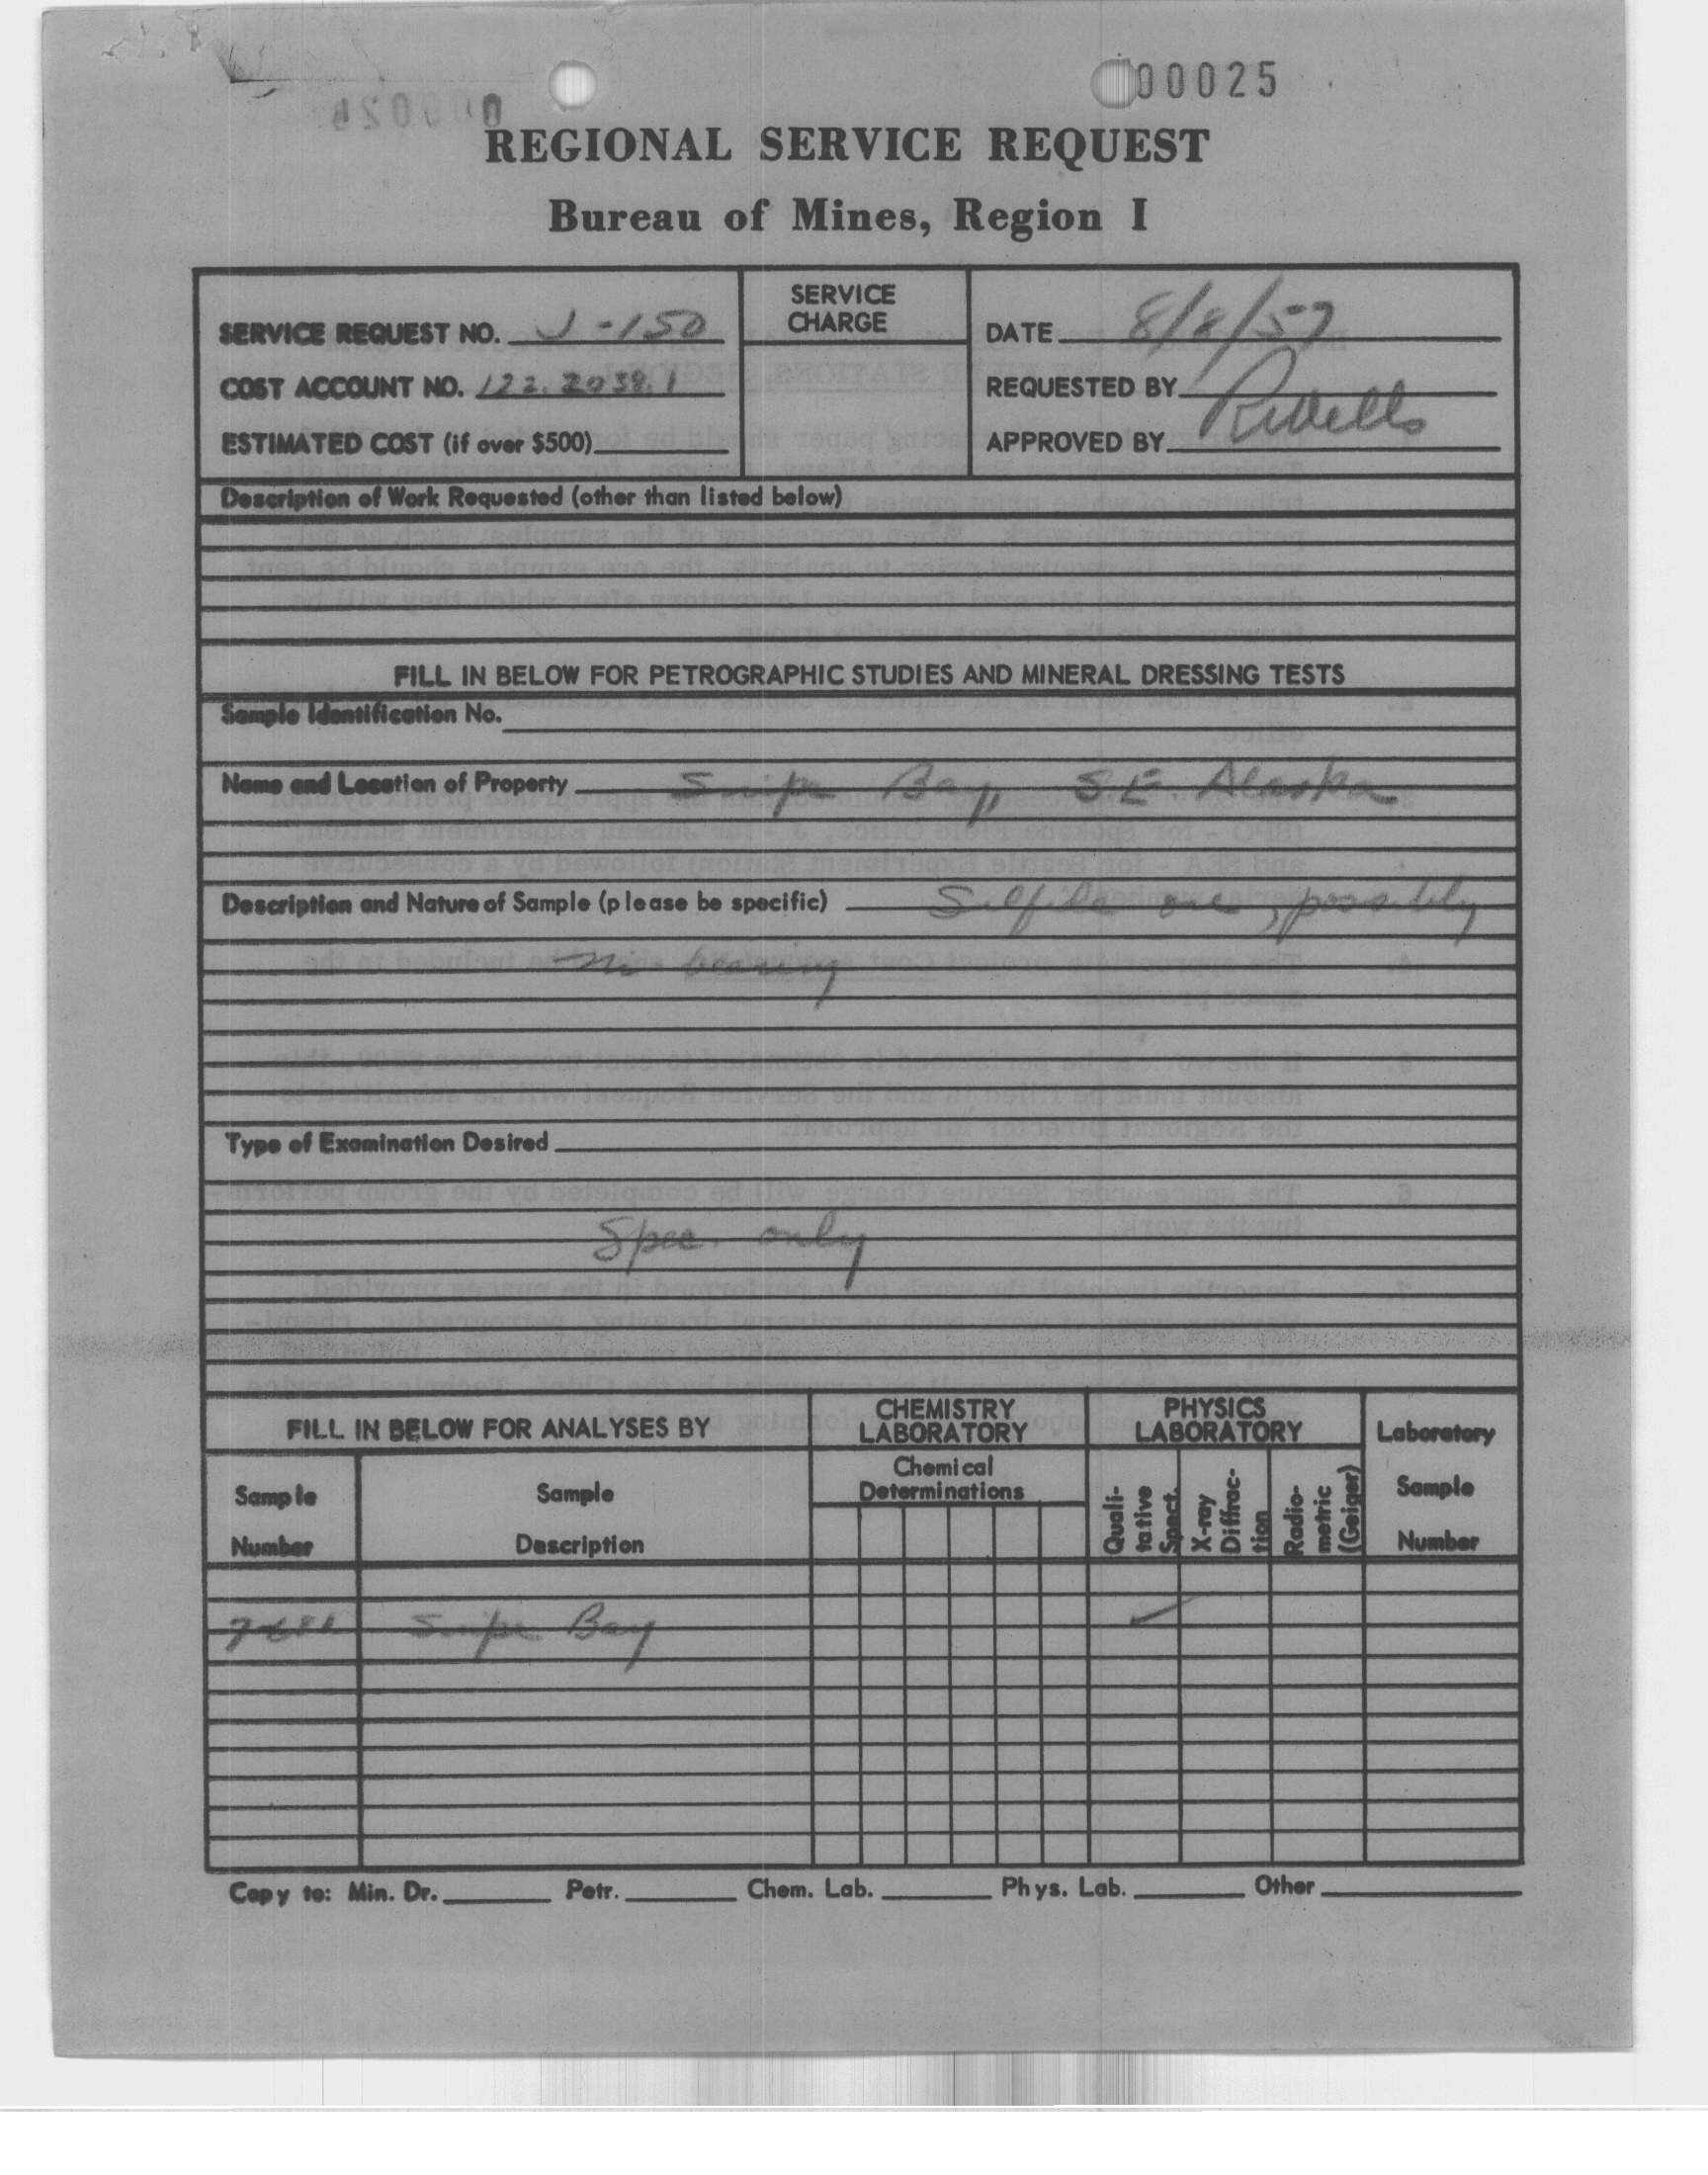 00025
REGIONAL SERVICE REQUEST
Bureau of Mines, Region I
SERVICE REQUEST NO. J-150
COST ACCOUNT NO. 122.2038.1
ESTIMATED COST (if over $500)
SERVICE
CHARGE
DATE 8/8/57
REQUESTED BY
APPROVED BY
Description of Work Requested (other than listed below)
FILL IN BELOW FOR PETROGRAPHIC STUDIES AND MINERAL DRESSING TESTS
Sample Identification No.
Name and Location of Property Snipe Bay, S.E. Alaska
Description and Nature of Sample (please be specific) Sulfide ore, possibly
Ni bearing
Type of Examination Desired
Spec. only
FILL IN BELOW FOR ANALYSES BY
CHEMISTRY
LABORATORY
PHYSICS
LABORATORY
Laboratory
Sample
Number
Sample
Number
Sample
Description
Chemical
Determinations
Quali-
tative
Spect.
X-ray
Diffrac-
tion
Radio-
metric
(Geiger)
Snipe Bay ✓
Copy to: Min. Dr. Petr. Chem. Lab. Phys. Lab. Other